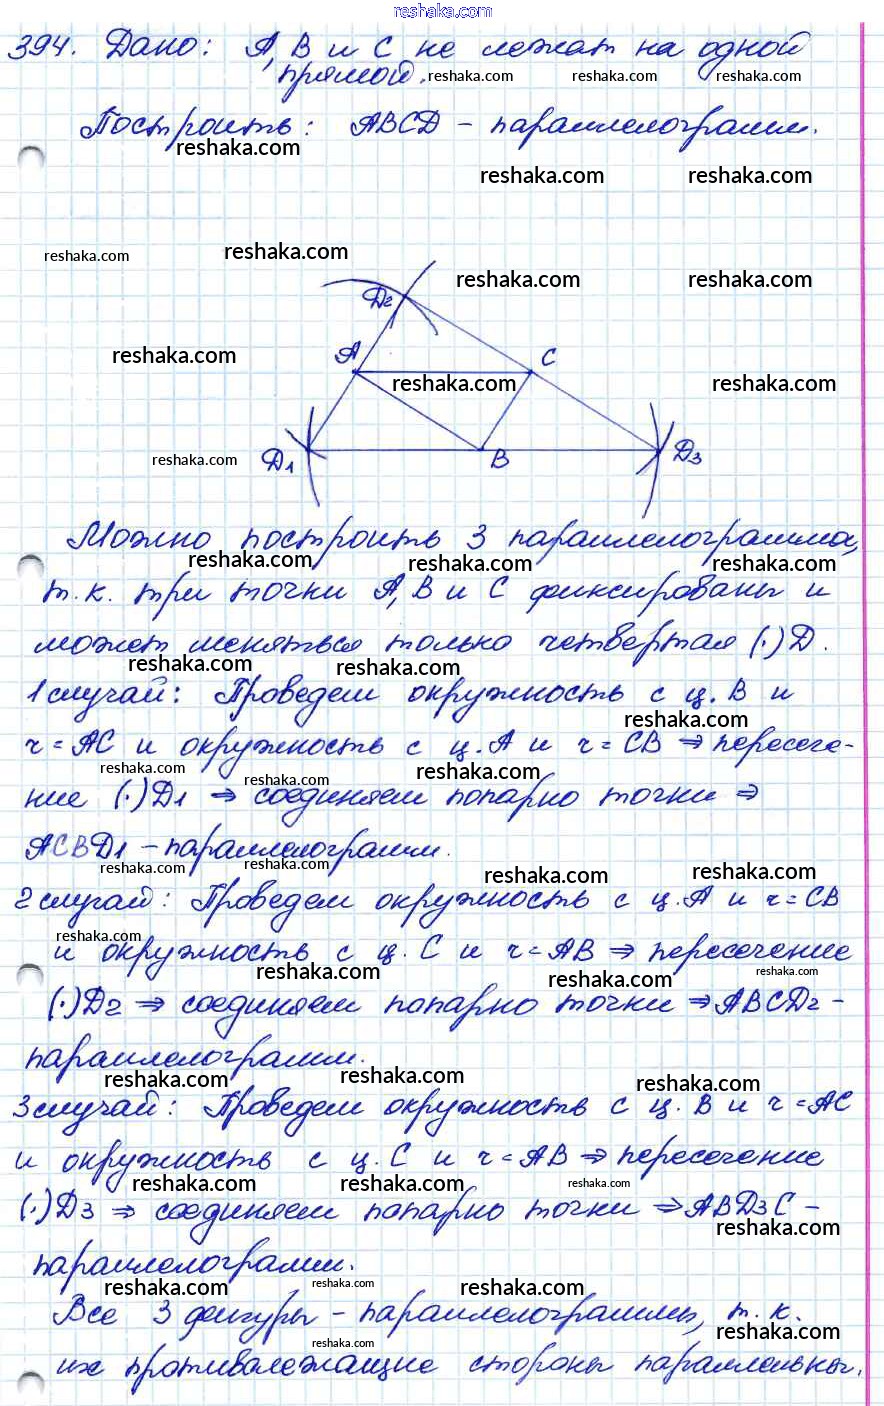 reshaka.com
394. Дано: А, В и С не лежат на одной
прямой. reshaka.com reshaka.com reshaka.com
Построить: ABCD – параллелограмм.
reshaka.com
reshaka.com reshaka.com
reshaka.com reshaka.com
reshaka.com reshaka.com
D2
reshaka.com A C
reshaka.com reshaka.com
reshaka.com D1 B D3
Можно построить 3 параллелограмма,
reshaka.com reshaka.com
т.к. три точки А, В и С фиксированы и
может меняться только четвертая (·) D.
reshaka.com reshaka.com
1 случай: Проведем окружность с ц. В и
reshaka.com
r = AC и окружность с ц. А и r = CB ⇒ пересече-
reshaka.com reshaka.com reshaka.com
ние (·) D1 ⇒ соединяем попарно точки ⇒
ACBD1 – параллелограмм.
reshaka.com reshaka.com reshaka.com reshaka.com
2 случай: Проведем окружность с ц. А и r = CB
reshaka.com
и окружность с ц. С и r = AB ⇒ пересечение
reshaka.com reshaka.com reshaka.com
(·) D2 ⇒ соединяем попарно точки ⇒ ABCD2 –
параллелограмм.
reshaka.com reshaka.com reshaka.com
3 случай: Проведем окружность с ц. В и r = AC
и окружность с ц. С и r = AB ⇒ пересечение
reshaka.com reshaka.com reshaka.com
(·) D3 ⇒ соединяем попарно точки ⇒ ABD3C –
reshaka.com
параллелограмм.
reshaka.com reshaka.com reshaka.com
Все 3 фигуры – параллелограммы, т.к.
reshaka.com reshaka.com
их противолежащие стороны параллельны.